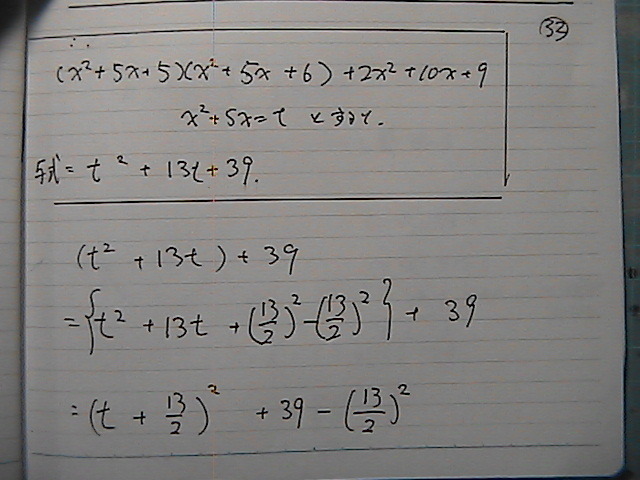 ㉝
∴
(x²+5x+5)(x²+5x+6)+2x²+10x+9
x²+5x=t とすると.
与式= t² + 13t + 39.
(t² + 13t) + 39
={t² + 13t + (13/2)² - (13/2)²} + 39
=(t + 13/2)² + 39 - (13/2)²